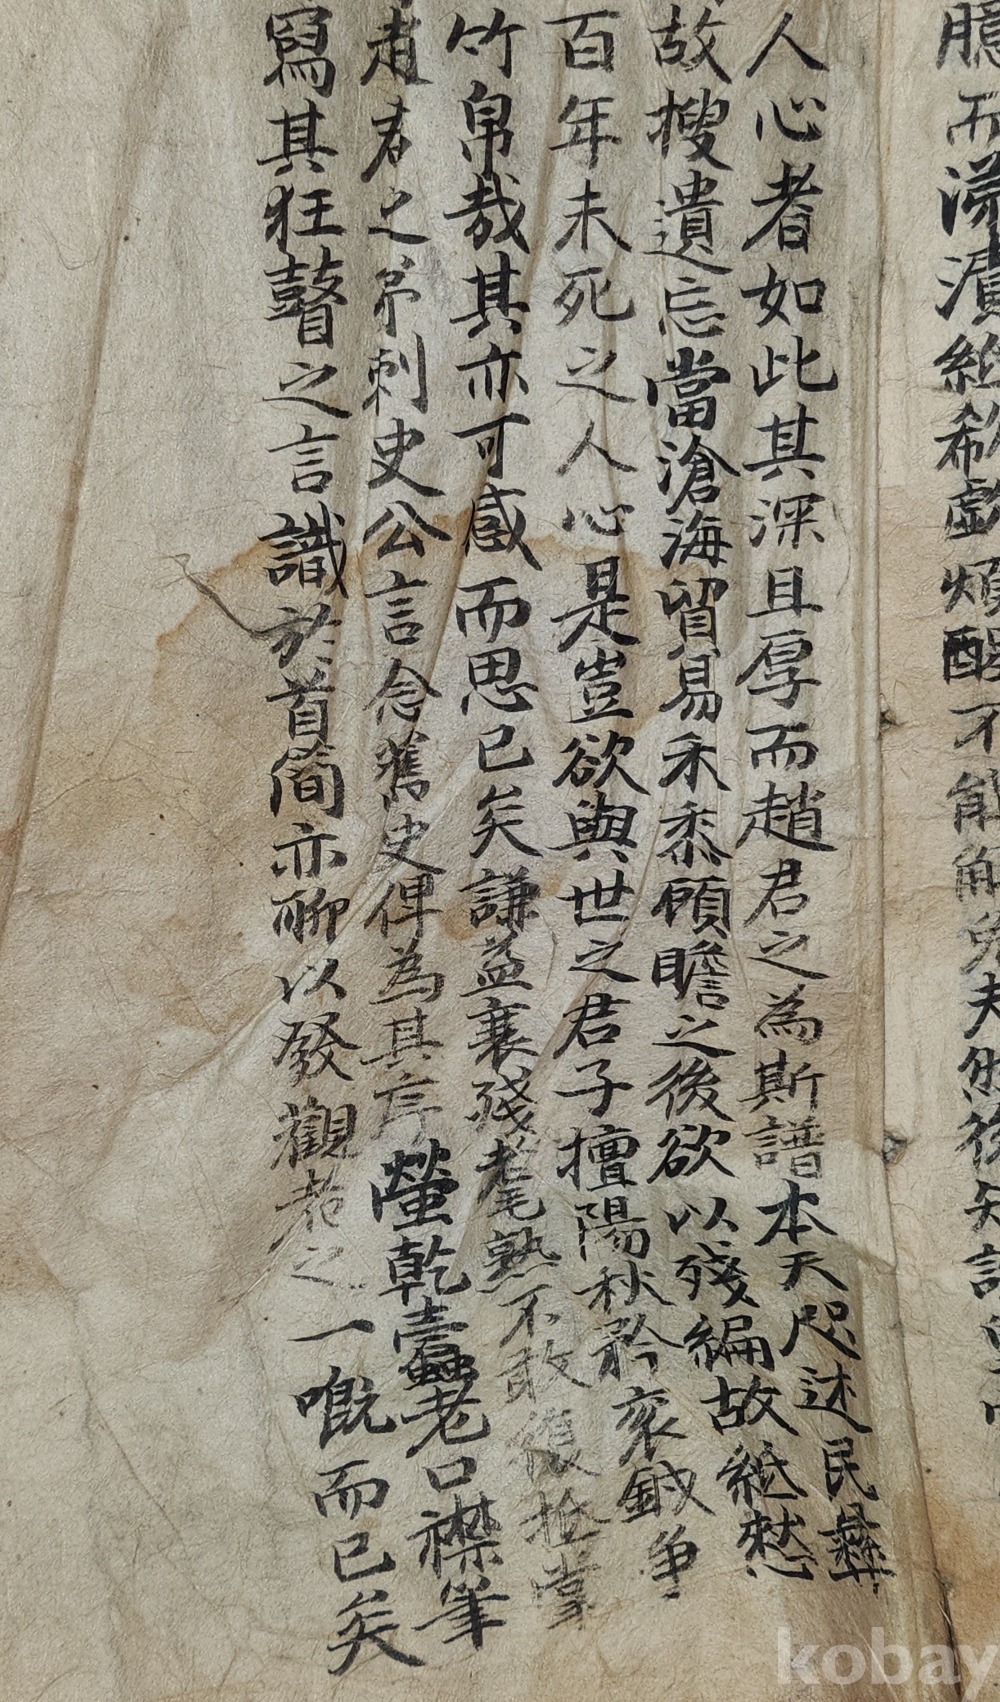 臆而
不能解
人心者如此其深且厚而趙君之為斯譜本天咫述民彝
故搜遺忘當滄海貿易禾黍顧瞻之後欲以殘編故紙愁
百年未死之人心是豈欲與世之君子擅陽秋矜袞鉞爭
竹帛哉其亦可感而思已矣謙益衰殘耄熟不敢復抵掌
君之弟刺史公言念舊史俾為其序螢乾蠹老口襟筆
寫其狂瞽之言識於首簡亦聊以發觀者之一嘅而已矣
kobay